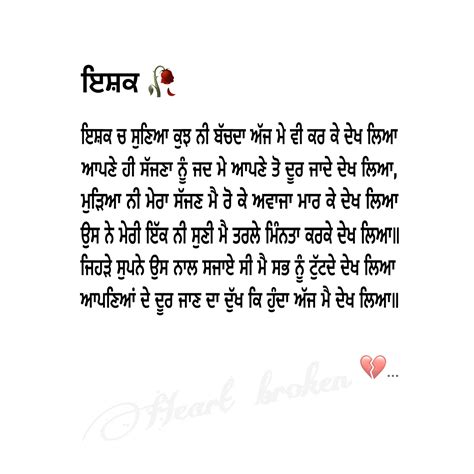 ਇਸ਼ਕ 🥀
ਇਸ਼ਕ ਚ ਸੁਣਿਆ ਕੁਝ ਨੀ ਬੱਚਦਾ ਅੱਜ ਮੇ ਵੀ ਕਰ ਕੇ ਦੇਖ ਲਿਆ
ਆਪਣੇ ਹੀ ਸੱਜਣਾ ਨੂੰ ਜਦ ਮੇ ਆਪਣੇ ਤੋ ਦੂਰ ਜਾਦੇ ਦੇਖ ਲਿਆ,
ਮੁੜਿਆ ਨੀ ਮੇਰਾ ਸੱਜਣ ਮੈ ਰੋ ਕੇ ਅਵਾਜਾ ਮਾਰ ਕੇ ਦੇਖ ਲਿਆ
ਉਸ ਨੇ ਮੇਰੀ ਇੱਕ ਨੀ ਸੁਣੀ ਮੈ ਤਰਲੇ ਮਿੰਨਤਾ ਕਰਕੇ ਦੇਖ ਲਿਆ॥
ਜਿਹੜੇ ਸੁਪਨੇ ਉਸ ਨਾਲ ਸਜਾਏ ਸੀ ਮੈ ਸਭ ਨੂੰ ਟੁੱਟਦੇ ਦੇਖ ਲਿਆ
ਆਪਣਿਆਂ ਦੇ ਦੂਰ ਜਾਣ ਦਾ ਦੁੱਖ ਕਿ ਹੁੰਦਾ ਅੱਜ ਮੈ ਦੇਖ ਲਿਆ॥
Heart broken 💔...